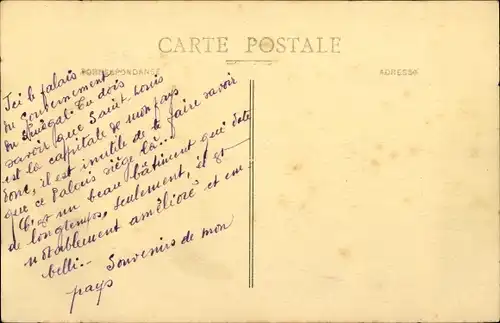 CARTE POSTALE
CORRESPONDANCE
ADRESSE
Ici le palais
du gouvernement
du Sénégal. Tu dois
savoir que Saint-Louis
est la capitale de mon pays
donc, il est inutile de te faire savoir
que ce Palais siège là..
C'est un beau bâtiment qui date
de longtemps, seulement, il est
notablement amélioré et em-
belli.-
Souvenirs de mon
pays